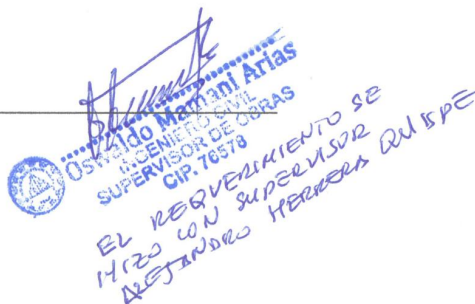 Oswaldo Mamani Arias
INGENIERO CIVIL
SUPERVISOR DE OBRAS
CIP. 76578
EL REQUERIMIENTO SE
HIZO CON SUPERVISOR
ALEJANDRO HERRERA QUISPE